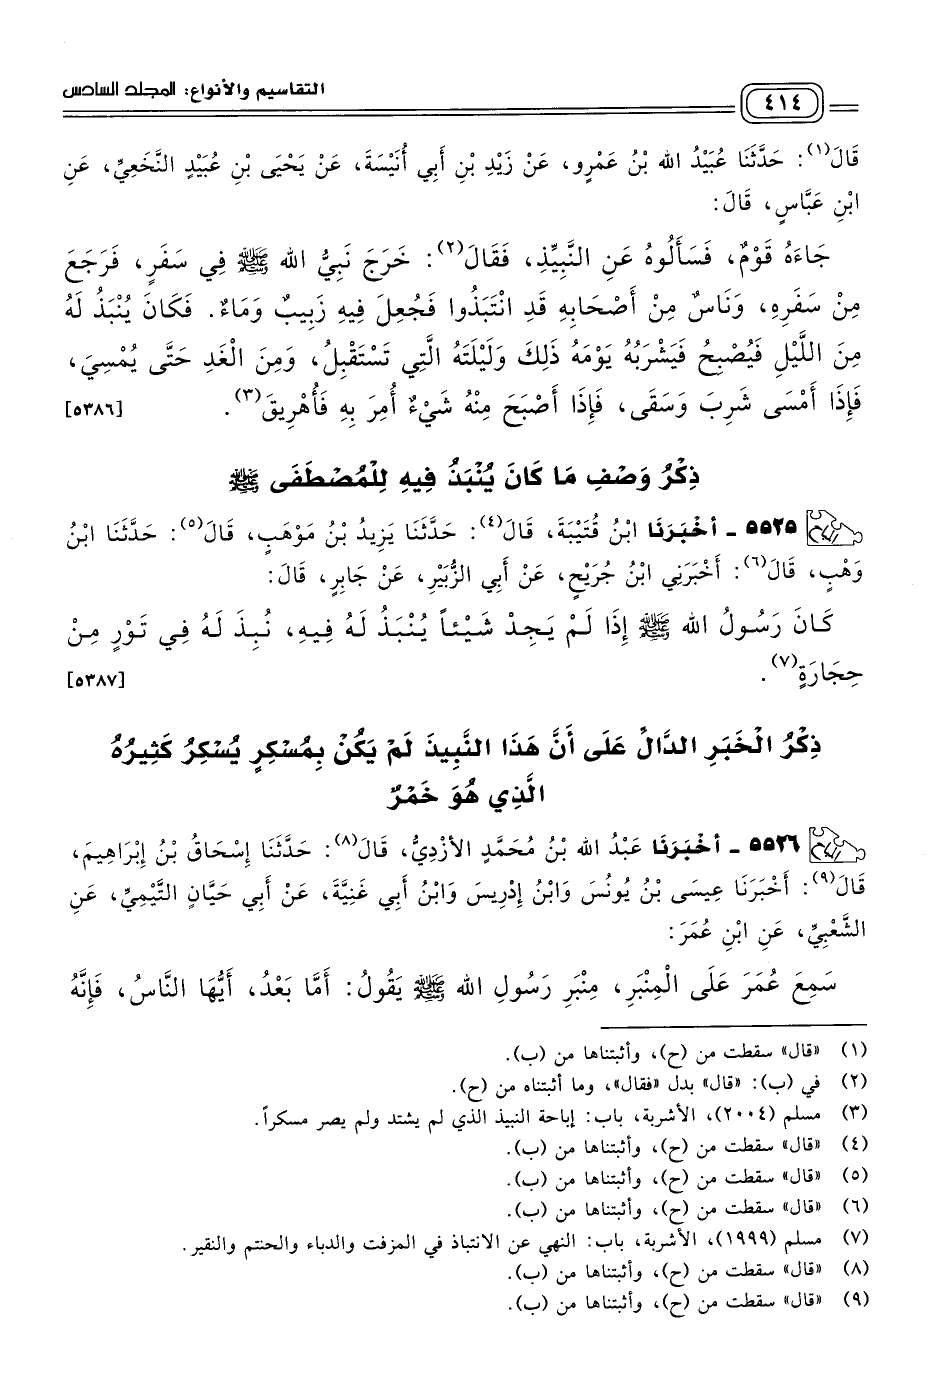 ٤١٤ التقاسيم والأنواع: المجلد السادس
قَالَ(١): حَدَّثَنَا عُبَيْدُ الله بْنُ عَمْرٍو، عَنْ زَيْدِ بْنِ أَبِي أُنَيْسَةَ، عَنْ يَحْيَى بْنِ عُبَيْدٍ النَّخَعِيِّ، عَنِ
ابْنِ عَبَّاسٍ، قَالَ:
جَاءَهُ قَوْمٌ، فَسَأَلُوهُ عَنِ النَّبِيِّذِ، فَقَالَ(٢): خَرَجَ نَبِيُّ الله ﷺ فِي سَفَرٍ، فَرَجَعَ
مِنْ سَفَرِهِ، وَنَاسٌ مِنْ أَصْحَابِهِ قَدِ انْتَبَذُوا فَجُعِلَ فِيهِ زَبِيبٌ وَمَاءٌ. فَكَانَ يُنْبَذُ لَهُ
مِنَ اللَّيْلِ فَيُصْبِحُ فَيَشْرَبُهُ يَوْمَهُ ذَلِكَ وَلَيْلَتَهُ الَّتِي تَسْتَقْبِلُ، وَمِنَ الْغَدِ حَتَّى يُمْسِيَ،
فَإِذَا أَمْسَى شَرِبَ وَسَقَى، فَإِذَا أَصْبَحَ مِنْهُ شَيْءٌ أُمِرَ بِهِ فَأُهْرِيقَ(٣). [٥٣٨٦]
ذِكْرُ وَصْفِ مَا كَانَ يُنْبَذُ فِيهِ لِلْمُصْطَفَى ﷺ
٥٥٢٥ - أَخْبَرَنَا ابْنُ قُتَيْبَةَ، قَالَ(٤): حَدَّثَنَا يَزِيدُ بْنُ مَوْهَبٍ، قَالَ(٥): حَدَّثَنَا ابْنُ
وَهْبٍ، قَالَ(٦): أَخْبَرَنِي ابْنُ جُرَيْجٍ، عَنْ أَبِي الزُّبَيْرِ، عَنْ جَابِرٍ، قَالَ:
كَانَ رَسُولُ الله ﷺ إِذَا لَمْ يَجِدْ شَيْئاً يُنْبَذُ لَهُ فِيهِ، نُبِذَ لَهُ فِي تَوْرٍ مِنْ
حِجَارَةٍ(٧). [٥٣٨٧]
ذِكْرُ الْخَبَرِ الدَّالِّ عَلَى أَنَّ هَذَا النَّبِيذَ لَمْ يَكُنْ بِمُسْكِرٍ يُسْكِرُ كَثِيرُهُ
الَّذِي هُوَ خَمْرٌ
٥٥٢٦ - أَخْبَرَنَا عَبْدُ الله بْنُ مُحَمَّدٍ الأَزْدِيُّ، قَالَ(٨): حَدَّثَنَا إِسْحَاقُ بْنُ إِبْرَاهِيمَ،
قَالَ(٩): أَخْبَرَنَا عِيسَى بْنُ يُونُسَ وَابْنُ إِدْرِيسَ وَابْنُ أَبِي غَنِيَّةَ، عَنْ أَبِي حَيَّانِ التَّيْمِيِّ، عَنِ
الشَّعْبِيِّ، عَنِ ابْنِ عُمَرَ:
سَمِعَ عُمَرَ عَلَى الْمِنْبَرِ، مِنْبَرِ رَسُولِ الله ﷺ يَقُولُ: أَمَّا بَعْدُ، أَيُّهَا النَّاسُ، فَإِنَّهُ
(١) «قال» سقطت من (ح)، وأثبتناها من (ب).
(٢) في (ب): «قال» بدل «فقال»، وما أثبتناه من (ح).
(٣) مسلم (٢٠٠٤)، الأشربة، باب: إباحة النبيذ الذي لم يشتد ولم يصر مسكراً.
(٤) «قال» سقطت من (ح)، وأثبتناها من (ب).
(٥) «قال» سقطت من (ح)، وأثبتناها من (ب).
(٦) «قال» سقطت من (ح)، وأثبتناها من (ب).
(٧) مسلم (١٩٩٩)، الأشربة، باب: النهي عن الانتباذ في المزفت والدباء والحنتم والنقير.
(٨) «قال» سقطت من (ح)، وأثبتناها من (ب).
(٩) «قال» سقطت من (ح)، وأثبتناها من (ب).